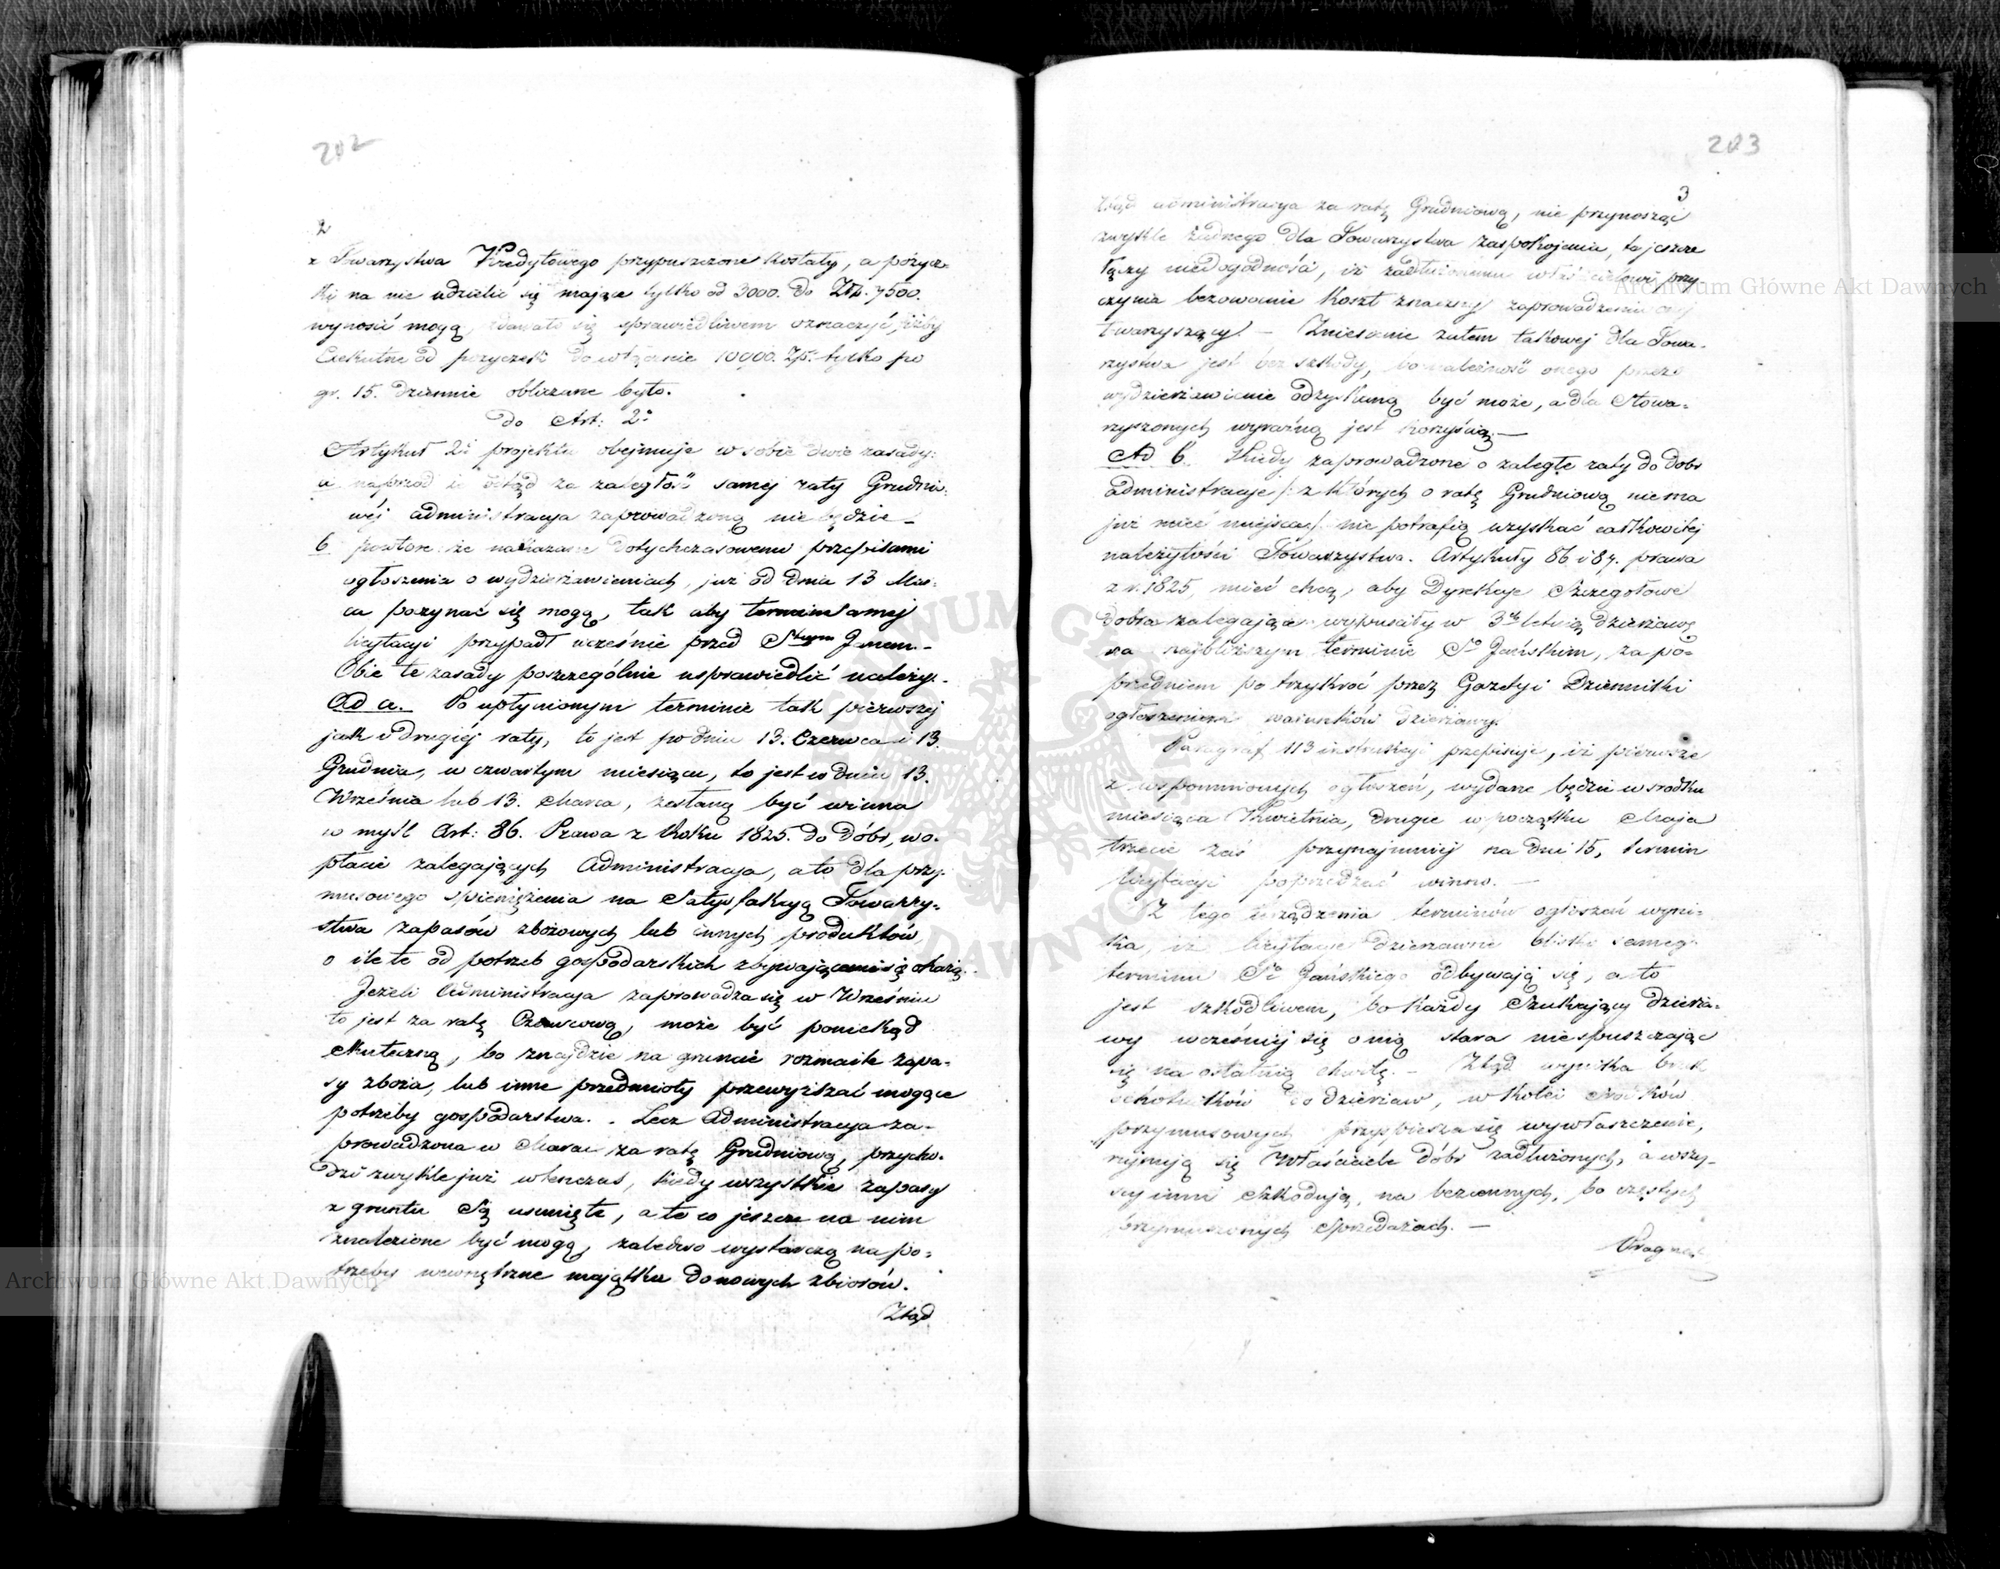 202
2
z Towarzystwa Kredytowego przypuszczone zostały, a pożycz-
ki na nie udzielić się mające tylko od 3000. do Złp. 7500.
wynosić mogą, zdawało się sprawiedliwem oznaczyć, iżby
Exekutne od pożyczek do włącznie 10000. Zp. tylko po
gr. 15. dziennie obliczane było.
do Art: 2º
Artykuł 2i projektu obejmuje w sobie dwie zasady:
a naprzód iż odtąd za zaległość samej raty Grudnio-
wéj administracya zaprowadzoną nie będzie –
b powtóre że nakazane dotychczasowemi przepisami
ogłoszenia o wydzierżawieniach, już od dnia 13 Mar-
ca poczynać się mogą, tak aby termin samej
licytacyi przypadł wcześnie przed Stym Janem. –
Obie te zasady poszczególnie usprawiedlić należy. –
Ad a. Po upłynionym terminie tak pierwszej
jak i drugiéj raty, to jest po dniu 13. Czerwca i 13.
Grudnia, w czwartym miesiącu, to jest w dniu 13.
Września lub 13. Marca, zesłaną być winna
w myśl Art: 86. Prawa z Roku 1825. do dóbr, w o-
płacie zalegających Administracya, a to dla przy-
musowego spieniężenia na Satysfakcyą Towarzy-
stwa zapasów zbożowych lub innych produktów,
o ile te od potrzeb gospodarskich zbywającemi się okażą.
Jeżeli Administracya zaprowadza się w Wrześniu
to jest za ratę Czerwcową, może być poniekąd
skuteczną, bo znajdzie na gruncie rozmaite zapa-
sy zboża, lub inne przedmioty przewyższać mogące
potrzeby gospodarstwa. – Lecz Administracya za-
prowadzona w Marcu za ratę Grudniową, przycho-
dzi zwykle już wtenczas, kiedy wszystkie zapasy
z gruntu są usunięte, a to co jeszcze na nim
znalezione być mogą, zaledwo wystarczą na po-
trzeby wewnętrzne majątku do nowych zbiorów.
Ztąd
203
3
Ztąd administracya za ratę Grudniową, nie przynosząc
zwykle żadnego dla Towarzystwa zaspokojenia, tę jeszcze
łączy niedogodność, iż zadłużonemu właścicielowi przy-
czynia bezowocnie koszt znaczny zaprowadzeniu onej
towarzyszący. – Zniesienie zatem takowej dla Towa-
rzystwa jest bez szkody, bo należność onego przez
wydzierżawienie odzyskaną być może, a dla Stowa-
rzyszonych wyraźną jest korzyścią. –
Ad b. Kiedy zaprowadzone o zaległe raty do dóbr
administracye /: z których o ratę Grudniową niema
już mieć miejsca :/ nie potrafią uzyskać całkowitej
należytości Towarzystwa. Artykuły 86 i 87. prawa
z r. 1825, mieć chcą, aby Dyrekcye Szczegółowe
dobra zalegające wypuściły w 3ch letnią dzierżawę
na najbliższym terminie Sto Jańskim, za po-
przedniem po trzykroć przez Gazety i Dzienniki
ogłoszeniem warunków dzierżawy.
Paragraf 113 instrukcyi przepisuje, iż pierwsze
z wspomnionych ogłoszeń, wydane będzie w środku
miesiąca Kwietnia, drugie w początku Maja
trzecie zaś przynajmniej na dni 15, termin
licytacyi poprzedzać winno. –
Z tego urządzenia terminów ogłoszeń wyni-
ka, iż licytacye dzierżawne blisko samego
terminu Sto Jańskiego odbywają się, a to
jest szkodliwem, bo każdy szukający dzierża-
wy wcześniej się o nią stara nie spuszczając
się na ostatnią chwilę. – Ztąd wynika brak
ochotników do dzierżaw, w kolei środków
przymusowych przyspiesza się wywłaszczenie,
rujnują się Właściciele dóbr zadłużonych, a wszy-
scy inni szkodują, na bezcennych, bo częstych
przymuszonych sprzedażach. –
Pragnąc
Archiwum Główne Akt Dawnych
Archiwum Główne Akt Dawnych
ARCHIWUM GŁÓWNE AKT DAWNYCH